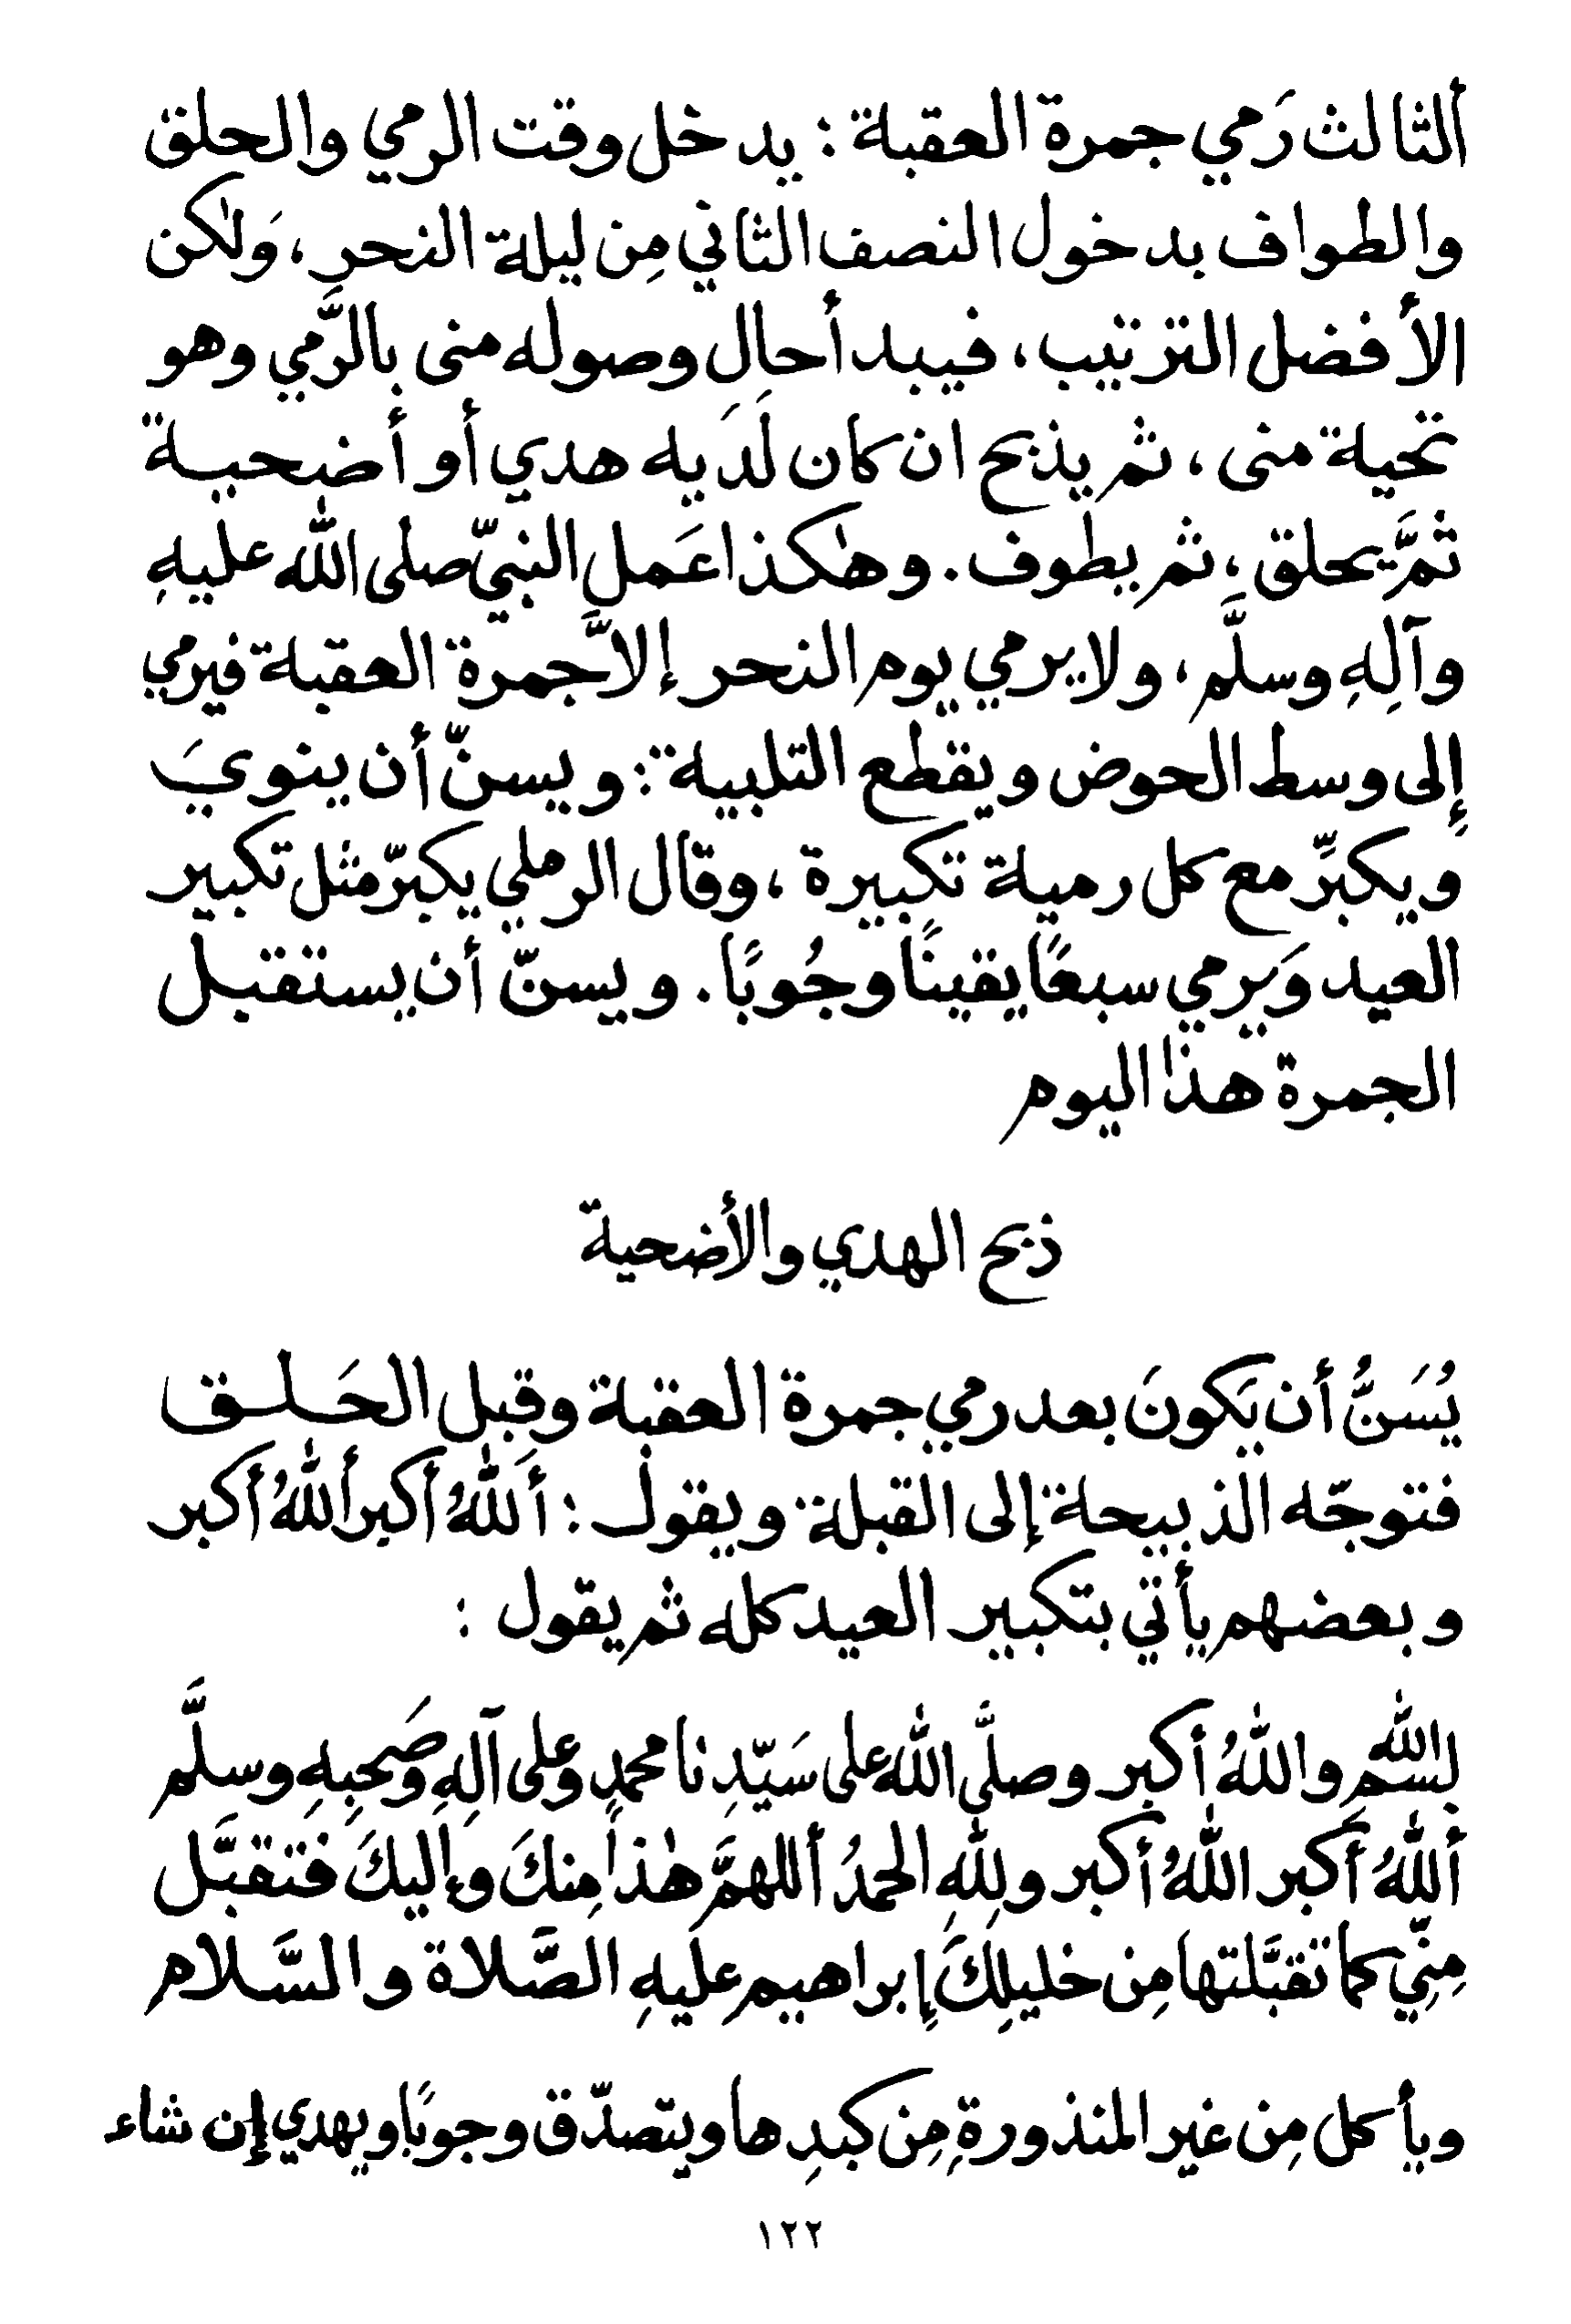 ألثالث رَمي جمرة العقبة : يدخل وقت الرمي والحلق
والطواف بدخول النصف الثاني مِن ليلة النحر ، وَلكن
الأفضل الترتيب ، فيبدأ حال وصوله منى بالرَّمي وهو
تحية منى ، ثم يذبح ان كان لَدَيه هدي أو أضحية
ثمَّ يحلق ، ثم يطوف . وهٰكذا عَمل النبيّ صلى الله عليهِ
وآلِهِ وسلَّم ، ولا يرمي يوم النحر إلاَّ جمرة العقبة فيرمي
إلى وسط الحوض ويقطع التلبية : ويسنّ أن ينويَ
ويكبِّر مع كل رمية تكبيرة ، وقال الرملي يكبرّ مثل تكبير
العيد وَيرمي سبعًا يقينًا وجُوبًا . ويسنّ أن يستقبل
الجمرة هذا اليوم
ذبح الهدي والأضحية
يُسَنُّ أن يَكونَ بعد رمي جمرة العقبة وقبل الحَلق
فتوجّه الذبيحة إلى القبلة ويقول : أَللهُ أكبر أللهُ أكبر
وبعضهم يأتي بتكبير العيد كله ثم يقول :
بسم الله واللهُ أكبر وصلَّى الله على سَيّدِنا محمدٍ وعلى آلِهِ وَصَحبِهِ وسلَّم
أللهُ أكبر اللهُ أكبر وللهِ الحمدُ أللهمَّ هٰذا مِنكَ وإليكَ فتقبَّل
مِنِّي كما تقبَّلتها مِن خليلِكَ إبراهيم عليهِ الصَّلاة والسَّلام
ويأكل مِن غير المنذورةِ مِن كبدِها ويتصدّق وجوبًا ويهدي إن شاء
١٢٢